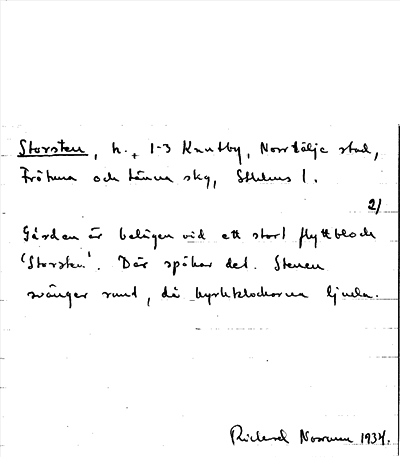 Storsten, h., 1-3 Knutby, Norrtälje stad,
Frötuna och Länna skg, Sthlms l.
2/
Gården är belägen vid ett stort flyttblock
'Storsten'. Där spökar det. Stenen
svänger runt, då kyrkklockorna ljuda.
Richard 1934.